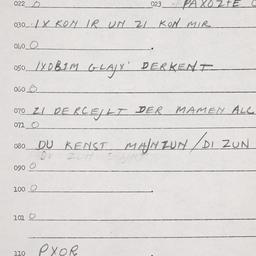 022 O 023 PAXOZTE
030 IX KON IR UN ZI KON MIR
040 O
050 IXOBIM GLAJX' DERKENT
060 O
070 ZI DERCEJLT DER MAMEN ALC
071 O
080 DU KENST MAJNZUN/DI ZUN
090 O
100 O
101 O
110 PXOR